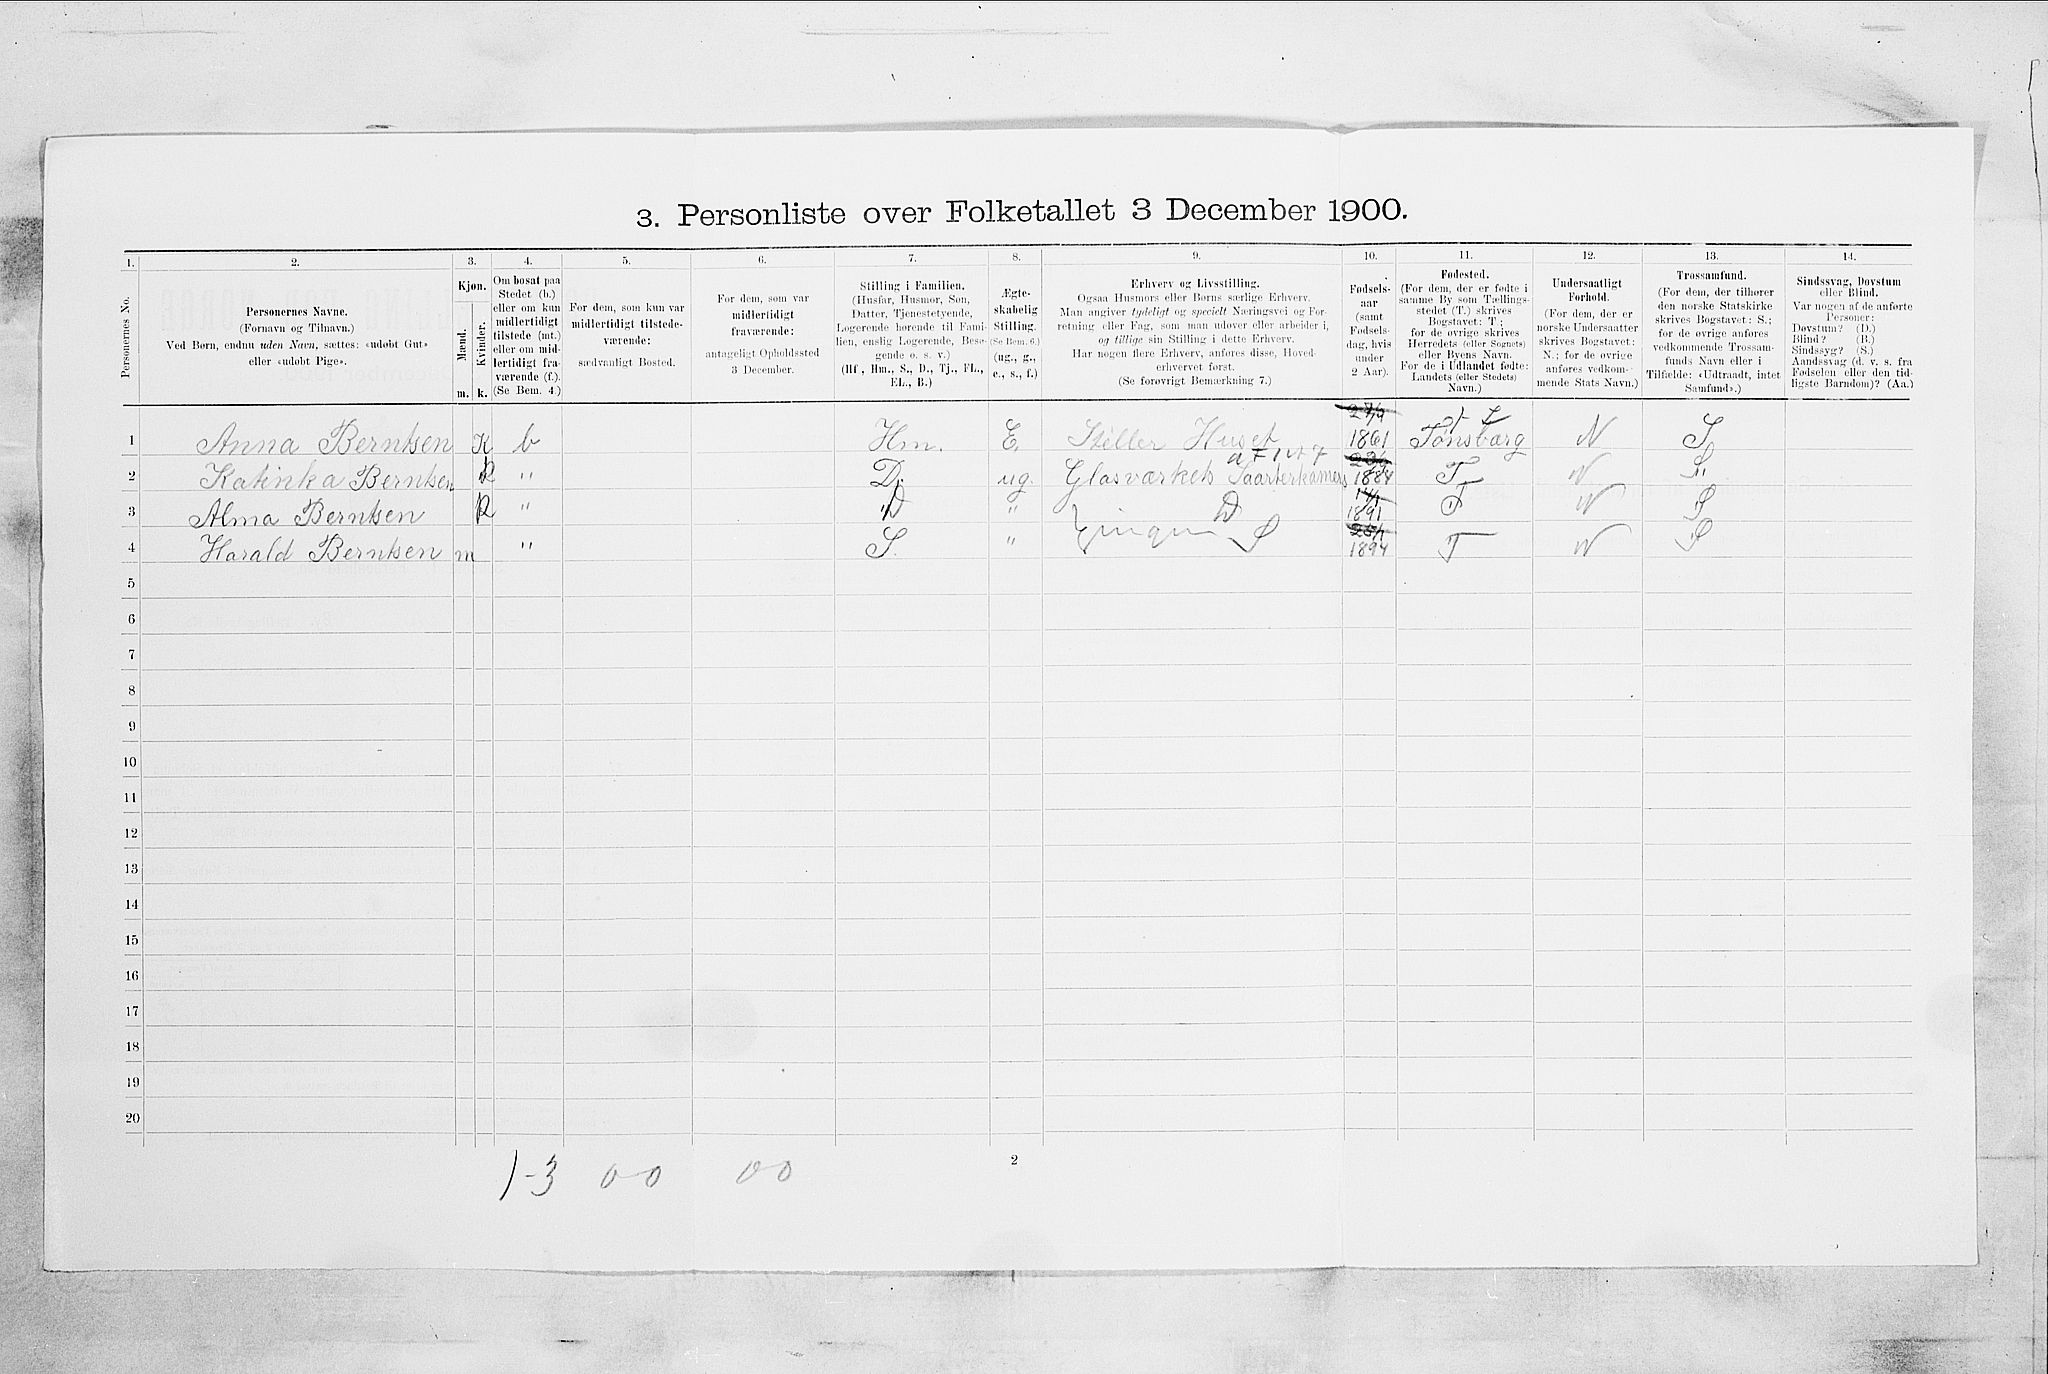 3. Personliste over Folketallet 3 December 1900.
1. 2. 3. 4. 5. 6. 7. 8. 9. 10. 11. 12. 13. 14.
Personernes No.
Personernes Navne.
(Fornavn og Tilnavn.)
Ved Børn, endnu uden Navn, sættes: «udøbt Gut»
eller «udøbt Pige».
Kjøn.
Mænd.
Kvinder.
m. k.
Om bosat paa
Stedet (b.)
eller om kun
midlertidigt
tilstede (mt.)
eller om mid-
lertidigt fra-
værende (f.).
(Se Bem. 4.)
For dem, som kun var
midlertidigt tilstede-
værende:
sædvanligt Bosted.
For dem, som var
midlertidigt
fraværende:
antageligt Opholdssted
3 December.
Stilling i Familien.
(Husfar, Husmor, Søn,
Datter, Tjenestetyende,
Logerende hørende til Fami-
lien, enslig Logerende, Besø-
gende o. s. v.)
(Hf., Hm., S., D., Tj., FL.,
EL., B.)
Ægte-
skabelig
Stilling.
(Se Bem. 6.)
(ug., g.,
e., s., f.)
Erhverv og Livsstilling.
Ogsaa Husmors eller Børns særlige Erhverv.
Man angiver tydeligt og specielt Næringsvei og For-
retning eller Fag, som man udøver eller arbeider i,
og tillige sin Stilling i dette Erhverv.
Har nogen flere Erhverv, anføres disse, Hoved-
erhvervet først.
(Se forøvrigt Bemærkning 7.)
Fødsels-
aar
(samt
Fødsels-
dag, hvis
under
2 Aar).
Fødested.
(For dem, der er fødte i
samme By som Tællings-
stedet (T.) skrives
Bogstavet: T.;
for de øvrige skrives
Herredets (eller Sognets)
eller Byens Navn.
For de i Udlandet fødte:
Landets (eller Stedets)
Navn.)
Undersaatligt
Forhold.
(For dem, der er
norske Undersaatter
skrives Bogstavet:
N.; for de øvrige
anføres vedkom-
mende Stats Navn.)
Trossamfund.
(For dem, der tilhører
den norske Statskirke
skrives Bogstavet: S.;
for de øvrige anføres
vedkommende Trossam-
funds Navn eller i
Tilfælde: «Udtraadt, intet
Samfund».)
Sindssvag, Døvstum
eller Blind.
Var nogen af de anførte
Personer:
Døvstum? (D.)
Blind? (B.)
Sindssyg? (S.)
Aandssvag (d. v. s. fra
Fødselen eller den tid-
ligste Barndom)? (Aa.)
1 Anna Berntsen K b Hm. E. Stéller Huset 1861 Tønsbærg N S
2 Katinka Berntsen k " D. ug. Glasværkets 1884 T N S
3 Alma Berntsen k " D " D 1891 T N S
4 Harald Berntsen m " S. " S 1894 T N S
5
6
7
8
9
10
11
12
13
14
15
16
17
18
19
20
1-3 00 00
2